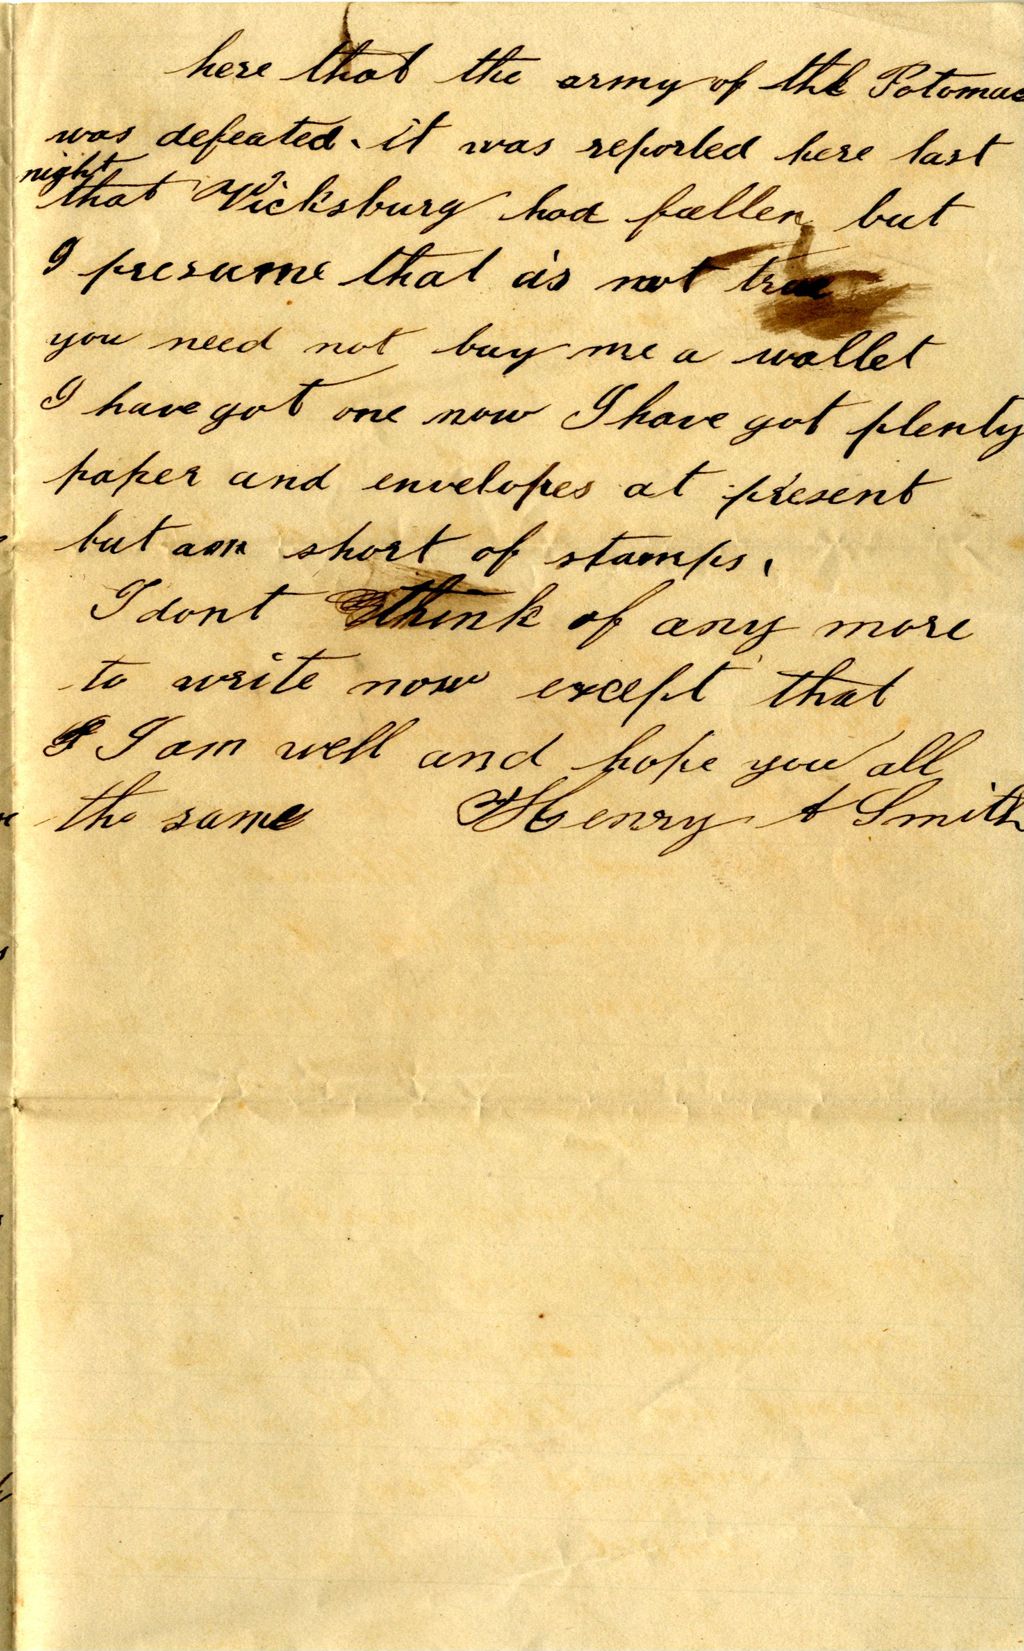 here that the army of the Potomac
was defeated. it was reported here last
night
that Vicksburg had fallen but
I presume that is not true
you need not buy me a wallet
I have got one now I have got plenty
paper and envelopes at present
but am short of stamps.
I dont think of any more
to write now except that
I am well and hope you all
the same Henry A Smith